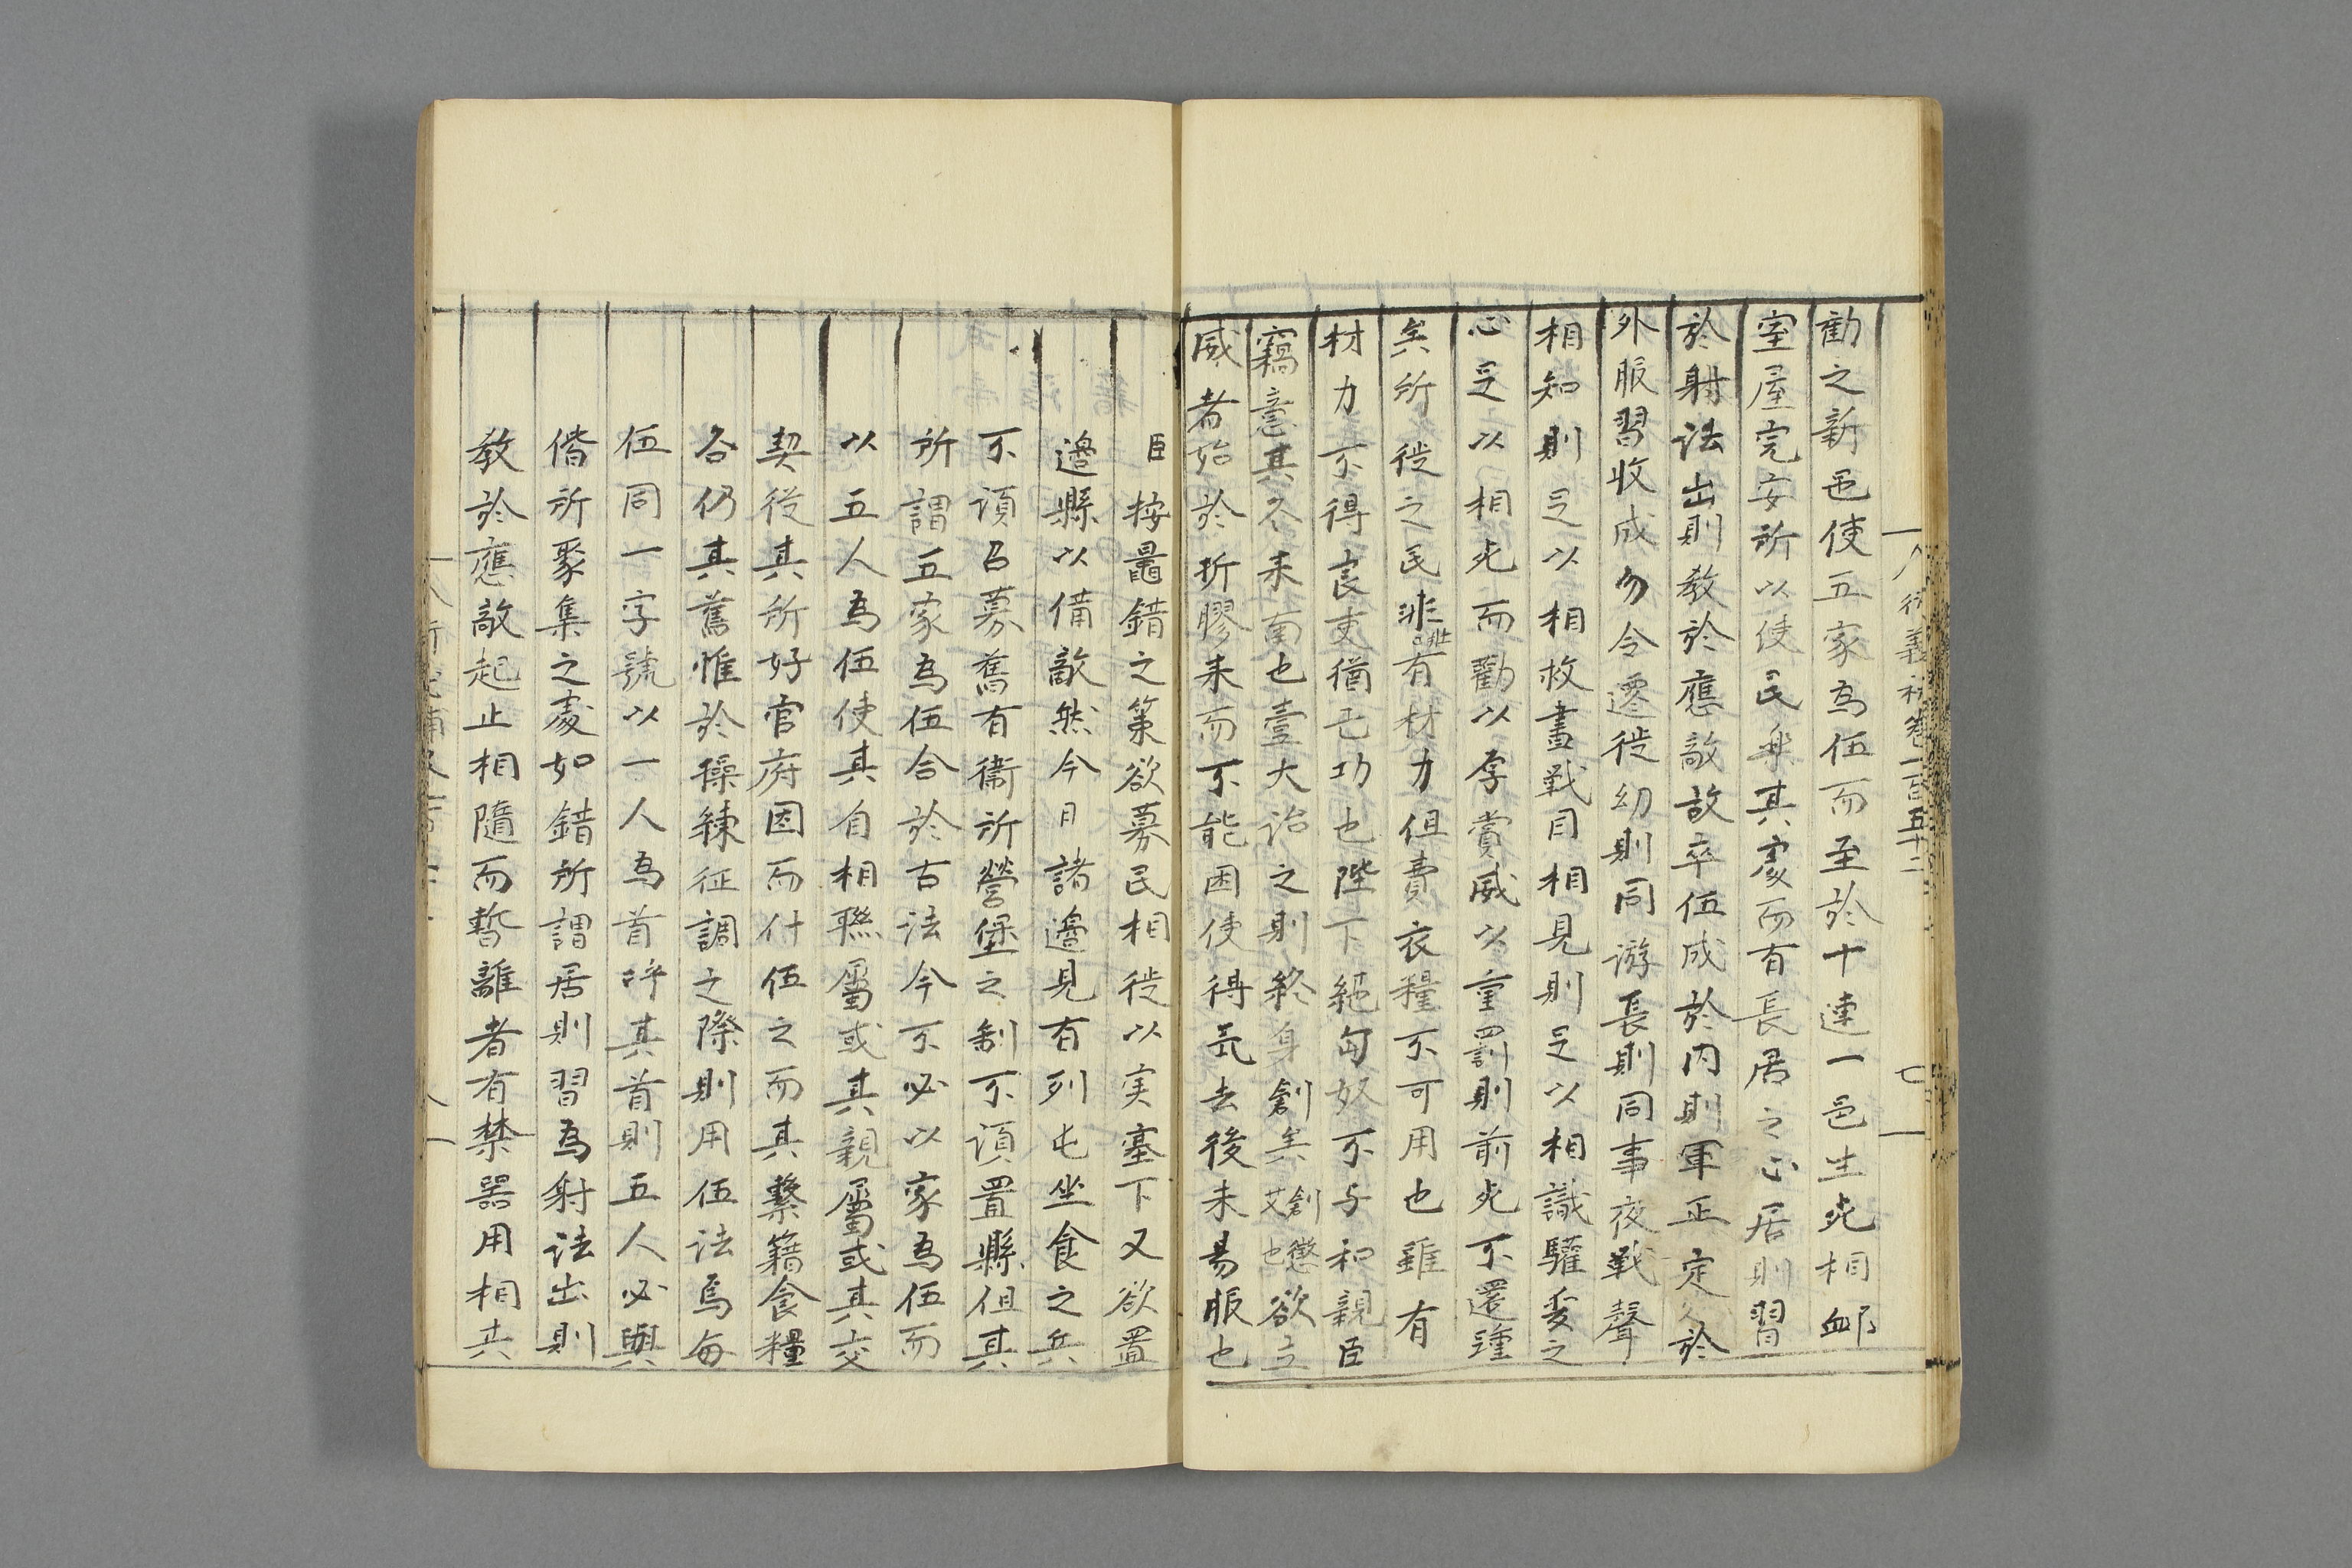 勸之新邑使五家為伍而至於十連一邑生死相邺
室屋完安所以使民樂其處而有長居之心居則習
於射法出則教於應敵故卒伍成於內則軍正定於
外服習收成勿令遷徙幼則同游長則同事夜戰聲
相知則足以相救晝戰目相見則足以相識驩爱之
心足以相死而勸以厚賞威以重罰則前死不還踵
矣所徙之民非壯有材力但費衣糧不可用也雖有
材力不得良吏猶亡功也陛下絕匈奴不与和親臣
竊意其冬来南也壹大治之則終身創矣創懲艾也欲立
威者始於折膠来而不能困使得氣去後未易服也
臣按鼂錯之策欲募民相徙以実塞下又欲置
邊縣以備敵然今日諸邊見有列屯坐食之兵
不須召募舊有衞所營堡之制不須置縣但其
所謂五家為伍合於古法今不必以家為伍而
以五人為伍使其自相聯屬或其親屬或其交
契從其所好官府因而什伍之而其繫籍食糧
各仍其舊惟於操練征調之際則用伍法焉每
伍同一字號以一人為首呼其首則五人必與
偕所聚集之處如錯所謂居則習為射法出則
教於應敵起止相隨而暫離者有禁器用相共